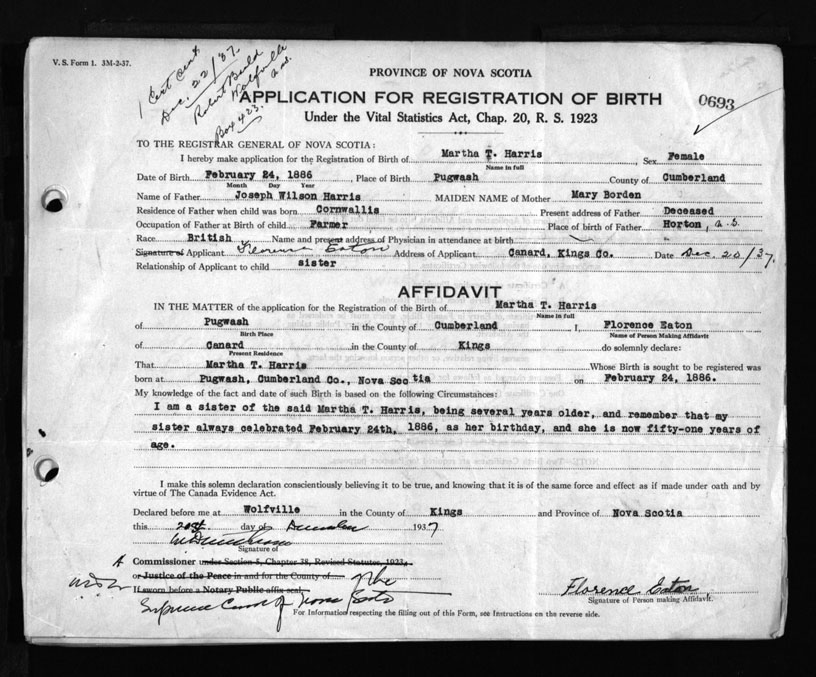 V. S. Form 1. 3M-2-37.
1 Cert sent
Dec. 22/37.
Wolfville
Box 423.
PROVINCE OF NOVA SCOTIA
APPLICATION FOR REGISTRATION OF BIRTH
0693
Under the Vital Statistics Act, Chap. 20, R. S. 1923
TO THE REGISTRAR GENERAL OF NOVA SCOTIA:
I hereby make application for the Registration of Birth of Martha T. Harris Sex Female
Name in full
Date of Birth February 24, 1886 Place of Birth Pugwash County of Cumberland
Month Day Year
Name of Father Joseph Wilson Harris MAIDEN NAME of Mother Mary Borden
Residence of Father when child was born Cornwallis Present address of Father Deceased
Occupation of Father at Birth of Child Farmer Place of birth of Father Horton,
Race British Name and present address of Physician in attendance at birth
Signature of Applicant Florence Eaton Address of Applicant Canard, Kings Co. Date Dec. 20/37.
Relationship of Applicant to child sister
AFFIDAVIT
IN THE MATTER of the application for the Registration of the Birth of Martha T. Harris
Name in full
of Pugwash in the County of Cumberland I, Florence Eaton
Birth Place Name of Person Making Affidavit
of Canard in the County of Kings do solemnly declare:
Present Residence
That Martha T. Harris Whose Birth is sought to be registered was
born at Pugwash, Cumberland Co., Nova Scotia on February 24, 1886.
My knowledge of the fact and date of such Birth is based on the following Circumstances:
I am a sister of the said Martha T. Harris, being several years older, and remember that my
sister always celebrated February 24th, 1886, as her birthday, and she is now fifty-one years of
age.
I make this solemn declaration conscientiously believing it to be true, and knowing that it is of the same force and effect as if made under oath and by
virtue of The Canada Evidence Act.
Declared before me at Wolfville in the County of Kings and Province of Nova Scotia
this 20th day of December 1937
Signature of
A Commissioner under Section 5, Chapter 38, Revised Statutes, 1923,
or Justice of the Peace in and for the County of the
If sworn before a Notary Public affix seal
Supreme Court of Nova Scotia
Florence Eaton
Signature of Person making Affidavit.
For Information respecting the filling out of this Form, see Instructions on the reverse side.